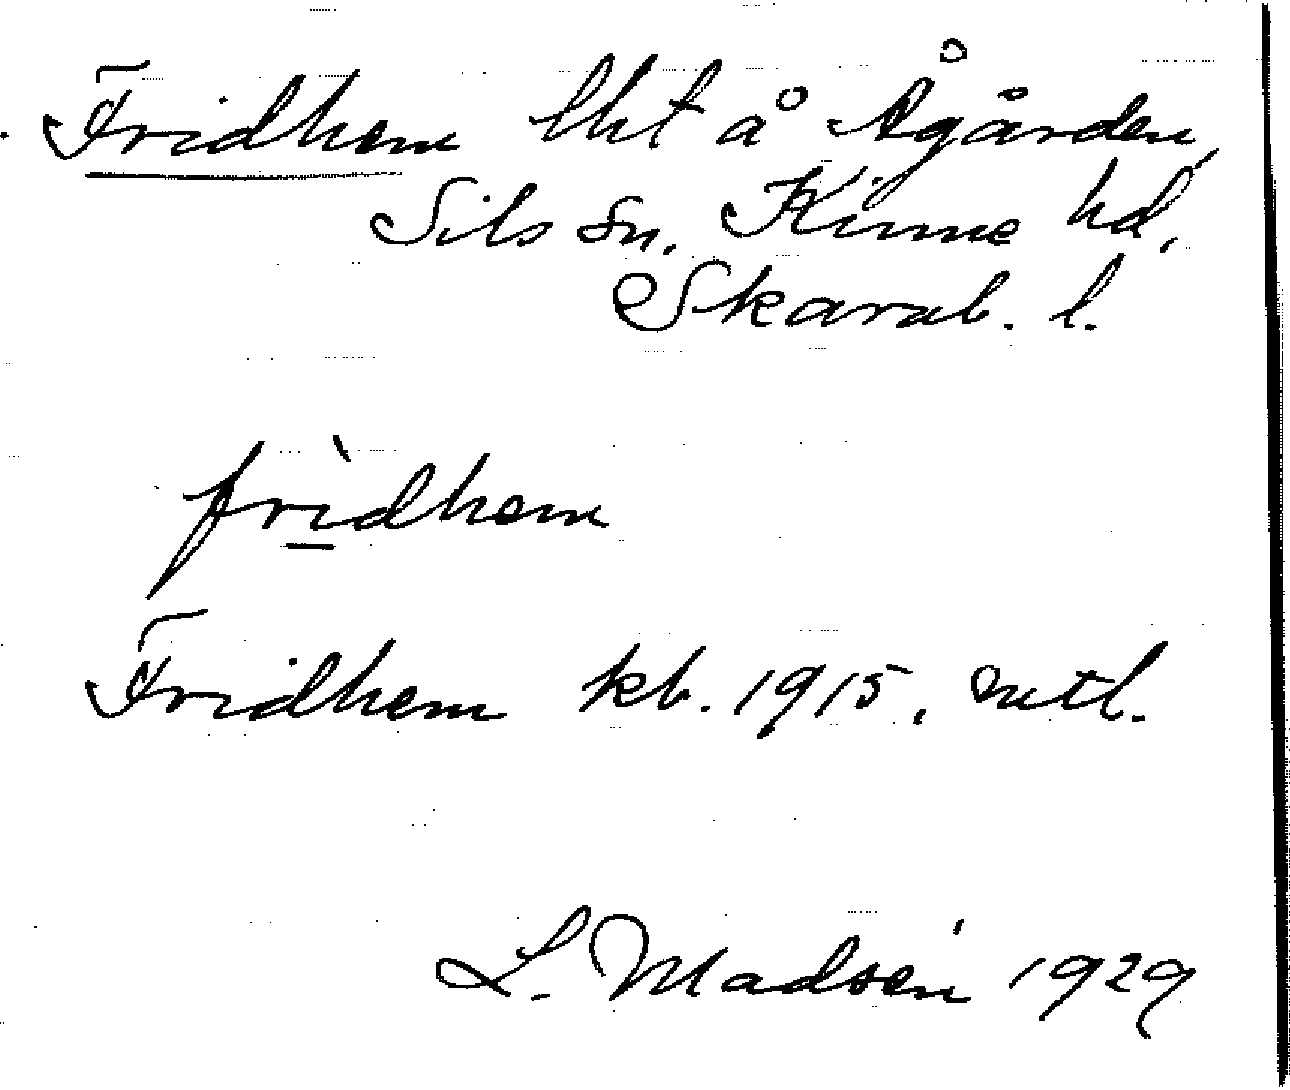 Fridhem lht å Ågården,
Sils sn, Kinne hd,
Skarab. l.
frì̲dhem
Fridhem kb. 1915, mtl.
L. Madsén 1929